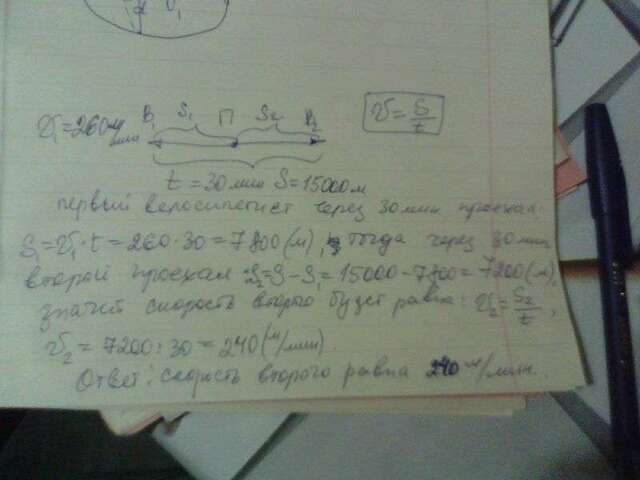 V₁
V₁=260м/мин
B₁ S₁ П S₂ B₂
V=S/t
t=30мин S=15000м
первый велосипедист через 30 мин. проехал
S₁=V₁·t=260·30=7800(м), тогда через 30 мин
второй проехал S₂=S-S₁=15000-7800=7200(м),
значит скорость второго будет равна: V₂=S₂/t,
V₂=7200:30=240(м/мин)
Ответ: скорость второго равна 240 м/мин.